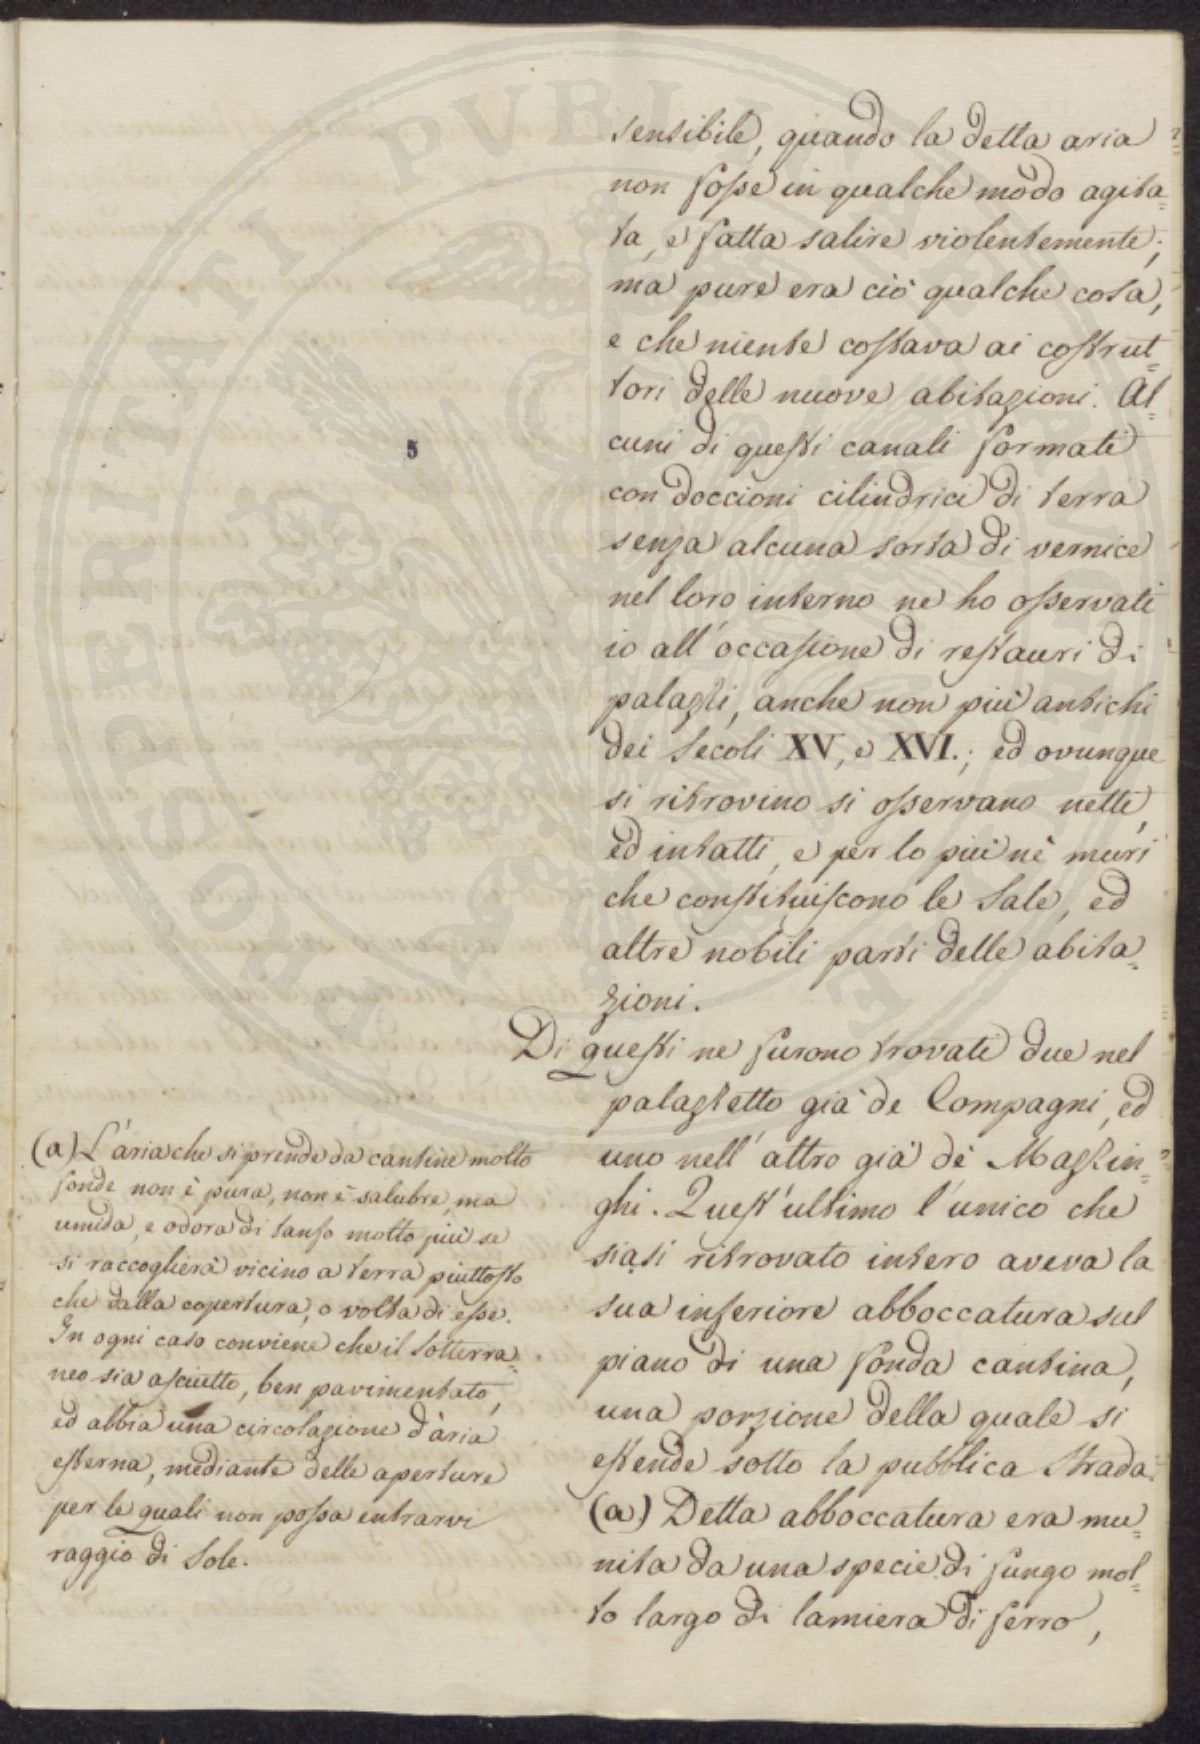 sensibile, quando la detta aria
non fosse in qualche modo agita=
ta, e fatta salire violentemente;
ma pure era ciò qualche cosa,
e che niente costava ai costrut=
tori delle nuove abitazioni. Al=
cuni di questi canali formati
con doccioni cilindrici di terra
senza alcuna sorta di vernice
nel loro interno ne ho osservati
io all'occasione di restauri di
palazzi, anche non più antichi
dei Secoli XV, e XVI.; ed ovunque
si ritrovino si osservano netti,
ed intatti, e per lo più nè muri
che constituiscono le Sale, ed
altre nobili parti delle abita=
zioni.
Di questi ne furono trovati due nel
palazzetto già de Compagni, ed
uno nell'altro già dè Mazzin=
ghi. Quest'ultimo l'unico che
siasi ritrovato intero aveva la
sua inferiore abboccatura sul
piano di una fonda cantina,
una porzione della quale si
estende sotto la pubblica Strada.
(a) Detta abboccatura era mu=
nita da una specie di fungo mol=
to largo di lamiera di ferro,
5
(a) L'aria che si prende da cantine molto
fonde non è pura, non è salubre, ma
umida, e odora di tanfo molto più se
si raccoglierà vicino a terra piuttosto
che dalla copertura, o volta di esse.
In ogni caso conviene che il Sotterra=
neo sia asciutto, ben pavimentato,
ed abbia una circolazione d'aria
esterna, mediante delle aperture
per le quali non possa entrarvi
raggio di Sole.
PROSPERITATI PVBLICAE